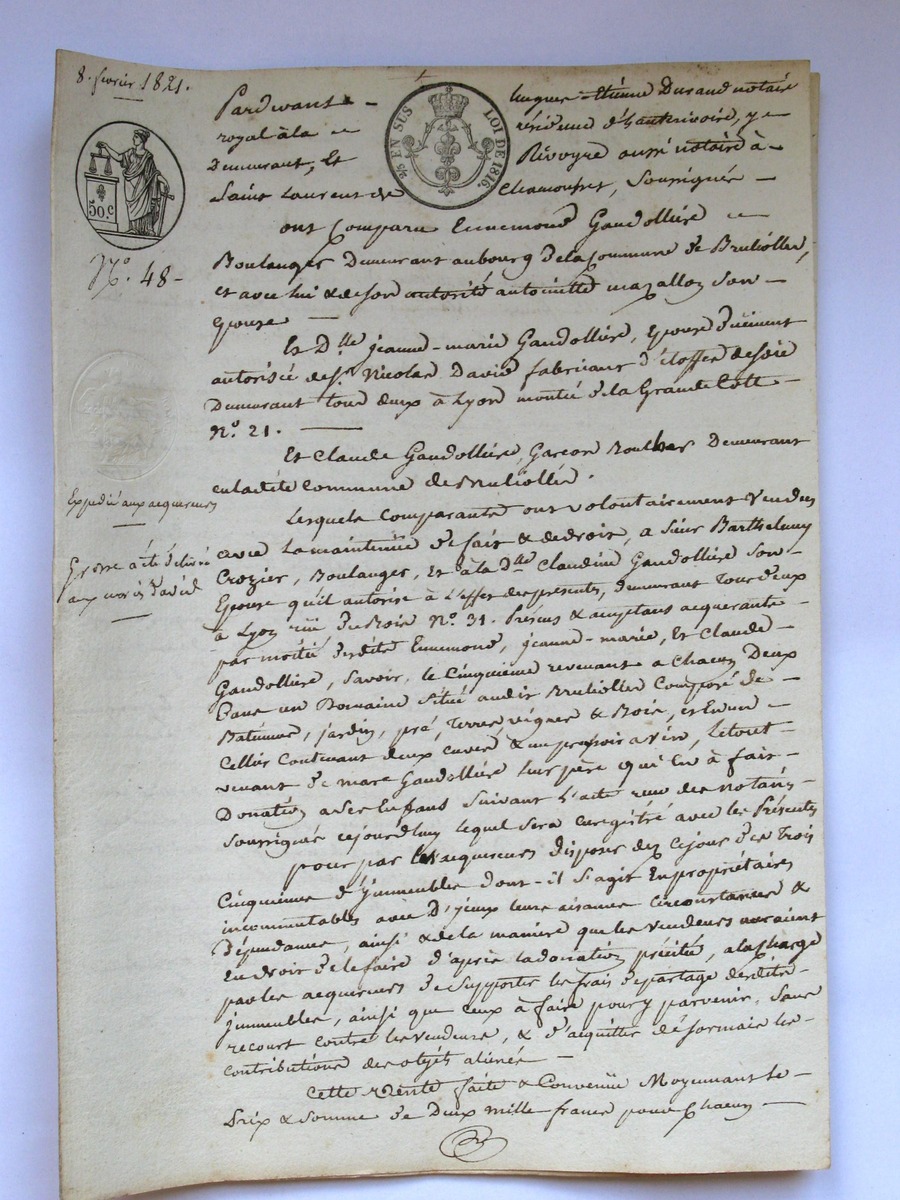 8. fevrier 1821.
50.c
EN SUS LOI DE 1816.
N.o 48 -
Pardevant - hugues - Etienne Durand notaire
royal à la residence d'hauterivoire, y
Demeurant, Et Rivoyre aussi notaire à -
Saint Laurent de Chamousset, Soussignés -
ont Comparu Ennemond Gaudollière
Boulanger Demeurant au bourg de la Commune de Brulliolles,
et avec lui & de son autorité antoinette mazallon Son -
Epouse
Et D.lle jeanne-marie Gaudollière, Epouse düement
autorisée de S.r Nicolas David fabricant d'étoffes de Soie
Demeurant tous deux à Lyon montée de la Grande Cotte -
N.o 21.
Et Claude Gaudollière, Garçon Demeurant
en ladite Commune de Brulliolles.
Expedié aux acquereurs
Grosse a été delivré
aux mariés David
Lesquels Comparants ont volontairement Vendus
avec La maintenüe de fait & de droit, a Sieur Barthelemy
Crozier, Boulanger, Et à la D.lle Claudine Gaudollière Son -
Epouse qu'il autorise à L'effet des présentes, demeurant Tous deux
à Lyon rüe du Bois N.o 31. Présens & acceptans acquerants
par moitié desdits Ennemond, jeanne-marie, Et Claude -
Gaudollière, Savoir, le Cinquième revenant a Chacun Deux
Dans un Domaine Situé audit Brulliolles Composé de -
Batimens, jardin, pré, Terres, vignes & Bois, et En un -
Cellier Contenant deux cuves & un pressoir a vin, Le tout -
venant de marc Gaudollière leur père qui En à fait -
Donation a Ses Enfans Suivant L'acte recu des notaires
Soussignés cejourd'huy lequel Sera Enregistré avec les Présentes
pour par les acquereurs disposer dez cejour des Trois
Cinquièmes d'jmmeubles dont-il S'agit En propriétaires
incommutables avec D'jceux leurs aisances circonstances &
Dépendances, ainsi & de la manière que les vendeurs auraient
En droit de le faire d'après la donation précitée, a la charge
par les acquereurs de Supporter les frais de partage desdits -
jmmeubles, ainsi que ceux à faire pour y parvenir, Sans
recourt contre les vendeurs, & d'acquitter désormais les
contributions des objets alienés -
Cette Vente faite & Convenüe Moyennant le -
Prix & Somme de Deux mille francs pour Chacun